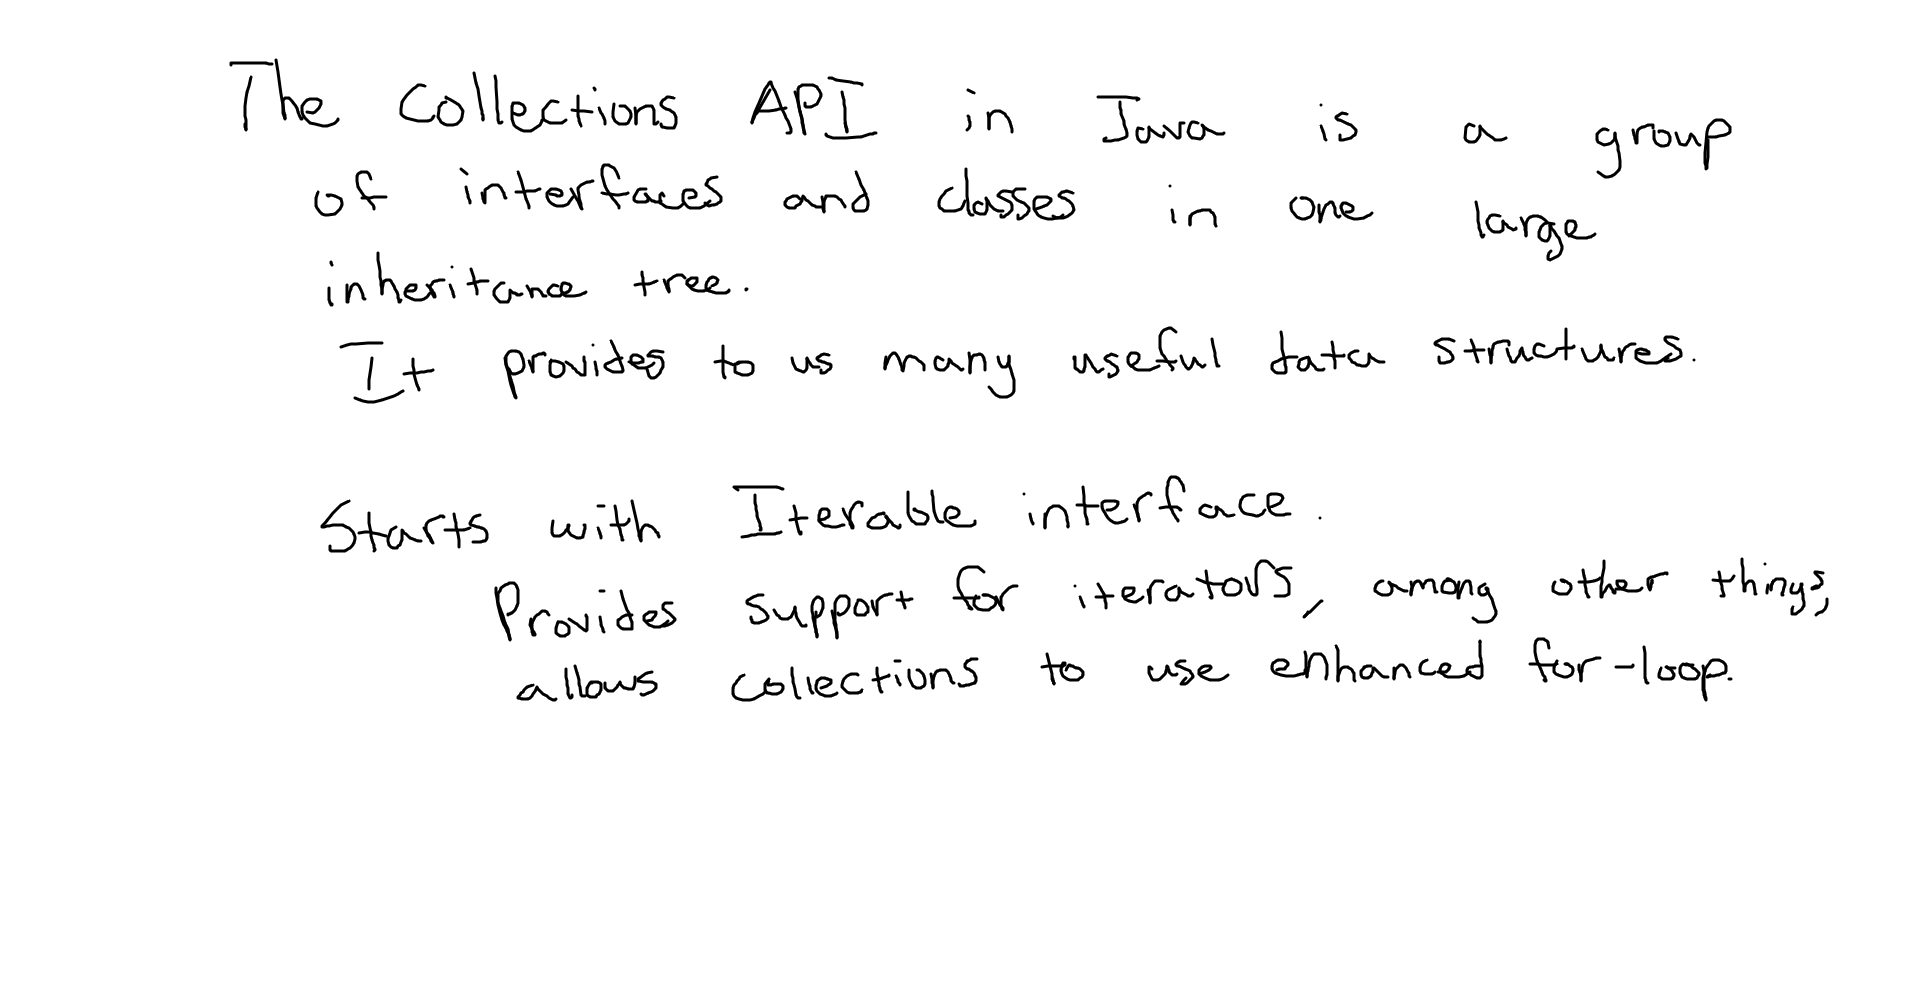 The Collections API in Java is a group
of interfaces and classes in one large
inheritance tree.
It provides to us many useful data structures.
Starts with Iterable interface.
Provides support for iterators, among other things,
allows collections to use enhanced for-loop.